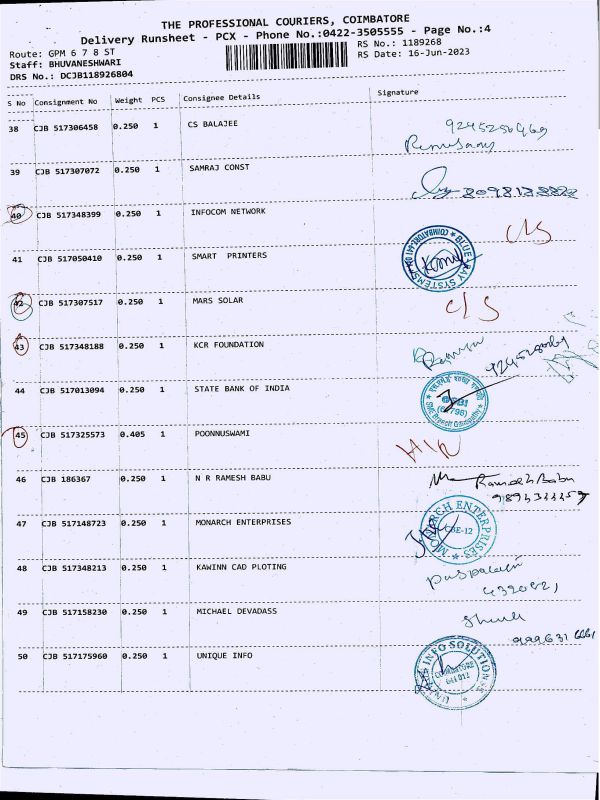 THE PROFESSIONAL COURIERS, COIMBATORE
Delivery Runsheet - PCX - Phone No.:0422-3505555 - Page No.:4
Route: GPM 6 7 8 ST
RS No.: 1189268
Staff: BHUVANESHWARI
RS Date: 16-Jun-2023
DRS No.: DCJB118926804
S No Consignment No Weight PCS Consignee Details Signature
38 CJB 517306458 0.250 1 CS BALAJEE
39 CJB 517307072 0.250 1 SAMRAJ CONST
40 CJB 517348399 0.250 1 INFOCOM NETWORK C/S
41 CJB 517050410 0.250 1 SMART PRINTERS BLUE RAY SYSTEMS
42 CJB 517307517 0.250 1 MARS SOLAR C/S
43 CJB 517348188 0.250 1 KCR FOUNDATION
44 CJB 517013094 0.250 1 STATE BANK OF INDIA
45 CJB 517325573 0.405 1 POONNUSWAMI
46 CJB 186367 0.250 1 N R RAMESH BABU Ramesh Babu
47 CJB 517148723 0.250 1 MONARCH ENTERPRISES MONARCH ENTERPRISES CBE-12
48 CJB 517348213 0.250 1 KAWINN CAD PLOTING
49 CJB 517158230 0.250 1 MICHAEL DEVADASS
50 CJB 517175960 0.250 1 UNIQUE INFO INFO SOLUTIONS COIMBATORE 641 012